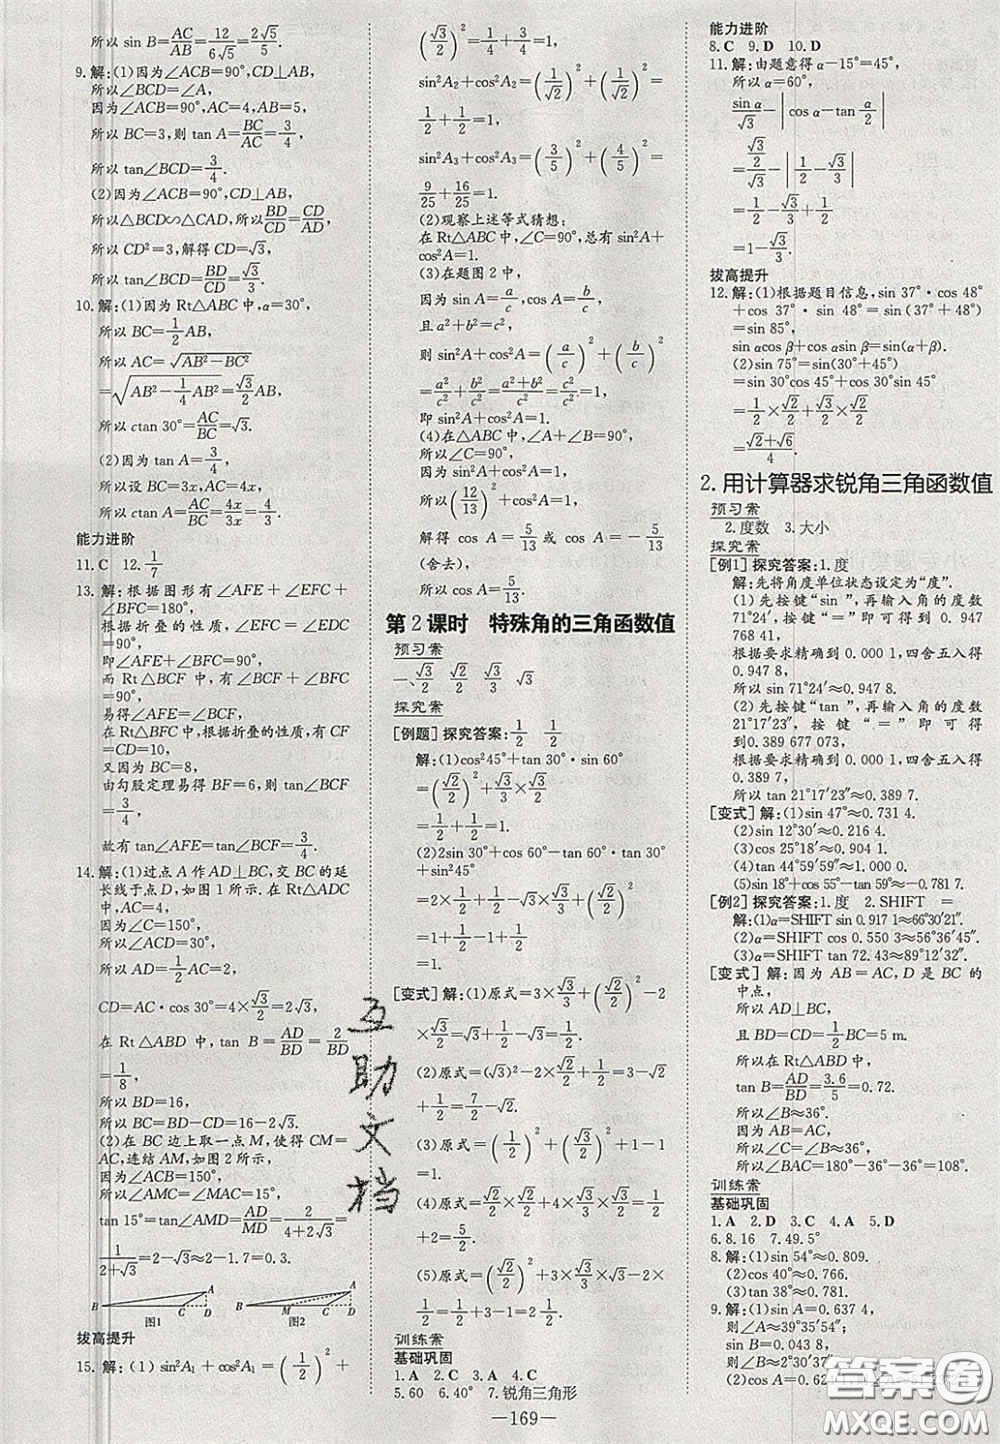 所以 sin B=AC/AB=12/6√5=2√5/5.
9.解:(1)因为∠ACB=90°,CD⊥AB,
所以∠BCD=∠A,
因为∠ACB=90°,AC=4,AB=5,
所以 BC=3,则 tan A=BC/AC=3/4,
所以 tan∠BCD=3/4.
(2)因为∠ACB=90°,CD⊥AB,
所以△BCD∽△CAD,所以BD/CD=CD/AD,
所以 CD²=3,解得 CD=√3,
所以 tan∠BCD=BD/CD=√3/3.
10.解:(1)因为 Rt△ABC中,α=30°,
所以 BC=1/2AB,
所以 AC=√(AB²-BC²)
=√(AB²-1/4AB²)=√3/2AB,
所以 ctan 30°=AC/BC=√3.
(2)因为 tan A=3/4,
所以设 BC=3x,AC=4x,
所以 ctan A=AC/BC=4x/3x=4/3.
能力进阶
11.C 12.1/7
13.解:根据图形有∠AFE+∠EFC+
∠BFC=180°,
根据折叠的性质,∠EFC=∠EDC
=90°,
即∠AFE+∠BFC=90°,
而 Rt△BCF 中,有∠BCF+∠BFC
=90°,
易得∠AFE=∠BCF,
在 Rt△BFC中,根据折叠的性质,有 CF
=CD=10,
又因为 BC=8,
由勾股定理易得 BF=6,则 tan∠BCF=
3/4,
故有 tan∠AFE=tan∠BCF=3/4.
14.解:(1)过点 A 作 AD⊥BC,交 BC 的延
长线于点 D,如图1所示.在 Rt△ADC
中,AC=4,
因为∠C=150°,
所以∠ACD=30°,
所以 AD=1/2AC=2,
CD=AC·cos 30°=4×√3/2=2√3,
在 Rt△ABD 中,tan B=AD/BD=2/BD=
1/8,
所以 BD=16,
所以 BC=BD-CD=16-2√3.
(2)在 BC 边上取一点 M,使得 CM=
AC,连结 AM,如图2所示,
因为∠ACB=150°,
所以∠AMC=∠MAC=15°,
tan 15°=tan∠AMD=AD/MD=2/(4+2√3)=
1/(2+√3)=2-√3≈2-1.7≈0.3.
B C D A 图1
B M C D A 图2
拔高提升
15.解:(1) sin²A₁+cos²A₁=(1/2)²+
(√3/2)²=1/4+3/4=1,
sin²A₂+cos²A₂=(1/√2)²+(1/√2)²=
1/2+1/2=1,
sin²A₃+cos²A₃=(3/5)²+(4/5)²=
9/25+16/25=1.
(2)观察上述等式猜想:
在 Rt△ABC 中,∠C=90°,总有 sin²A+
cos²A=1.
(3)在题图2中,
因为 sin A=a/c,cos A=b/c,
且 a²+b²=c²,
则 sin²A+cos²A=(a/c)²+(b/c)²
=a²/c²+b²/c²=(a²+b²)/c²=c²/c²=1,
即 sin²A+cos²A=1.
(4)在△ABC 中,∠A+∠B=90°,
所以∠C=90°,
因为 sin²A+cos²A=1,
所以(12/13)²+cos²A=1,
解得 cos A=5/13 或 cos A=-5/13
(舍去),
所以 cos A=5/13.
第2课时 特殊角的三角函数值
预习案
一、√3/2 √2/2 √3/3 √3
探究案
[例题] 探究答案:1/2 1/2
解:(1)cos²45°+tan 30°·sin 60°
=(√2/2)²+√3/3×√3/2
=1/2+1/2=1.
(2)2sin 30°+cos 60°-tan 60°·tan 30°
+sin²45°
=2×1/2+1/2-√3×√3/3+(√2/2)²
=1+1/2-1+1/2
=1.
[变式] 解:(1)原式=3×√3/3+(√2/2)²-2
×√3/2=√3+1/2-√3=1/2.
(2)原式=(√3)²-2×√3/2+1/2=3-√3
+1/2=7/2-√3.
(3)原式=(1/2)²+(√3/2)²=1/4+3/4
=1.
(4)原式=√2/2×√2/2+4×√3/2×√3/6=1/2
+2=5/2.
(5)原式=(√2/2)²-1/2+(√3/2)²
1/2-1/2+3-1=2.
训练案
基础巩固
1.A 2.C 3.A 4.C
5.60 6.40° 7.锐角三角形
能力进阶
8.C 9.D 10.D
11.解:由题意得 α-15°=45°,
所以 α=60°,
sin α/√3-|cos α-tan α/2|
=(√3/2)/√3-|1/2-√3/3|
=1/2-√3/3+1/2
=1-√3/3.
拔高提升
12.解:(1)根据题目信息,sin 37°·cos 48°
+cos 37°·sin 48°=sin(37°+48°)
=sin 85°,
sin αcos β+cos αsin β=sin(α+β).
(2)sin 75°=sin(30°+45°)
=sin 30°cos 45°+cos 30°sin 45°
=1/2×√2/2+√3/2×√2/2
=(√2+√6)/4.
2.用计算器求锐角三角函数值
预习案
2.度数 3.大小
探究案
[例1] 探究答案:1.度
解:先将角度单位状态设定为“度”.
(1)先按键“sin ”,再输入角的度数
71°24′, 按键“=”即可得到0.947
768 41,
根据要求精确到0.000 1,四舍五入得
0.947 8,
所以 sin 71°24′≈0.947 8.
(2)先按键“tan ”,再输入角的度数
21°17′23″,按键“=”即可得
到0.389 677 073,
根据要求精确到0.000 1,四舍五入得
0.389 7,
所以 tan 21°17′23″≈0.389 7.
[变式] 解:(1)sin 47°≈0.731 4.
(2)sin 12°30′≈0.216 4.
(3)cos 25°18′≈0.904 1.
(4)tan 44°59′59″≈1.000 0.
(5)sin 18°+cos 55°-tan 59°≈-0.781 7.
[例2] 探究答案:1.度 2.SHIFT =
解:(1)α=SHIFT sin 0.917 1≈66°30′21″.
(2)α=SHIFT cos 0.550 3≈56°36′45″.
(3)α=SHIFT tan 72.43≈89°12′32″.
[变式] 解:因为 AB=AC,D 是 BC 的
中点,
所以 AD⊥BC,
且 BD=CD=1/2BC=5 m.
所以在 Rt△ABD 中,
tan B=AD/BD=3.6/5=0.72.
所以∠B≈36°.
因为 AB=AC,
所以∠C=∠B≈36°,
所以∠BAC=180°-36°-36°=108°.
训练案
基础巩固
1.A 2.D 3.C 4.A 5.D
6.8.16 7.49.5°
8.解:(1)sin 54°≈0.809.
(2)cos 40°≈0.766.
(3)tan 38°≈0.781.
9.解:(1)sin A=0.637 4,
则∠A≈39°35′54″;
sin B=0.043 98,
则∠B≈2°31′14″.
(2)cos A=0.62
互助文档
答案圈
MXQE.COM
—169—